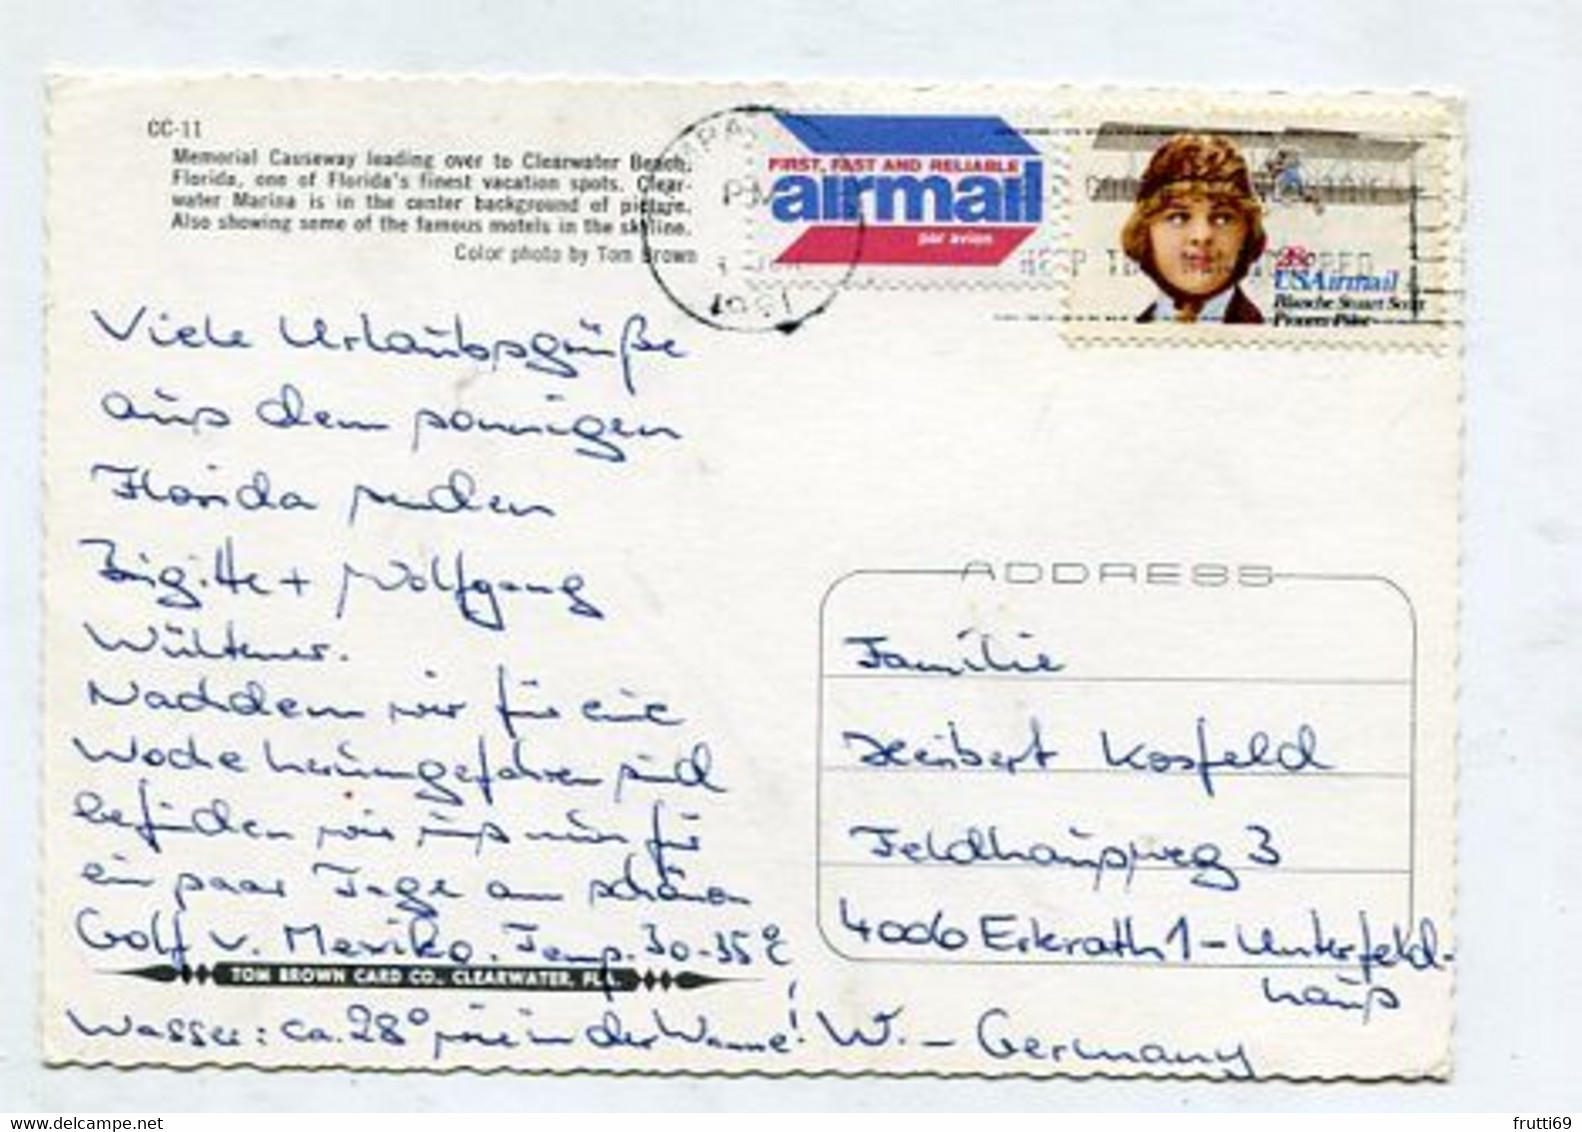 CC-11
Memorial Causeway leading over to Clearwater Beach,
Florida, one of Florida's finest vacation spots. Clear-
water Marina is in the center background of picture.
Also showing some of the famous motels in the skyline.
Color photo by Tom Brown
PM
1981
FIRST, FAST AND RELIABLE
airmail
par avion
28c
USAirmail
Blanche Stuart Scott
Pioneer Pilot
Viele Urlaubsgrüße
aus dem sonnigen
Florida senden
Brigitte + Wolfgang
Nachdem wir für eine
Woche herumgefahren sind
befinden wir uns nun für
ein paar Tage am schönen
Golf v. Mexiko. Temp. 30-35°C
Wasser: ca. 28° wie in der Wanne!
TOM BROWN CARD CO., CLEARWATER, FLA.
ADDRESS
Familie
Heribert Kosfeld
Feldhausweg 3
4006 Erkrath 1 - Unterfeld-
haus
W. - Germany
frutti69